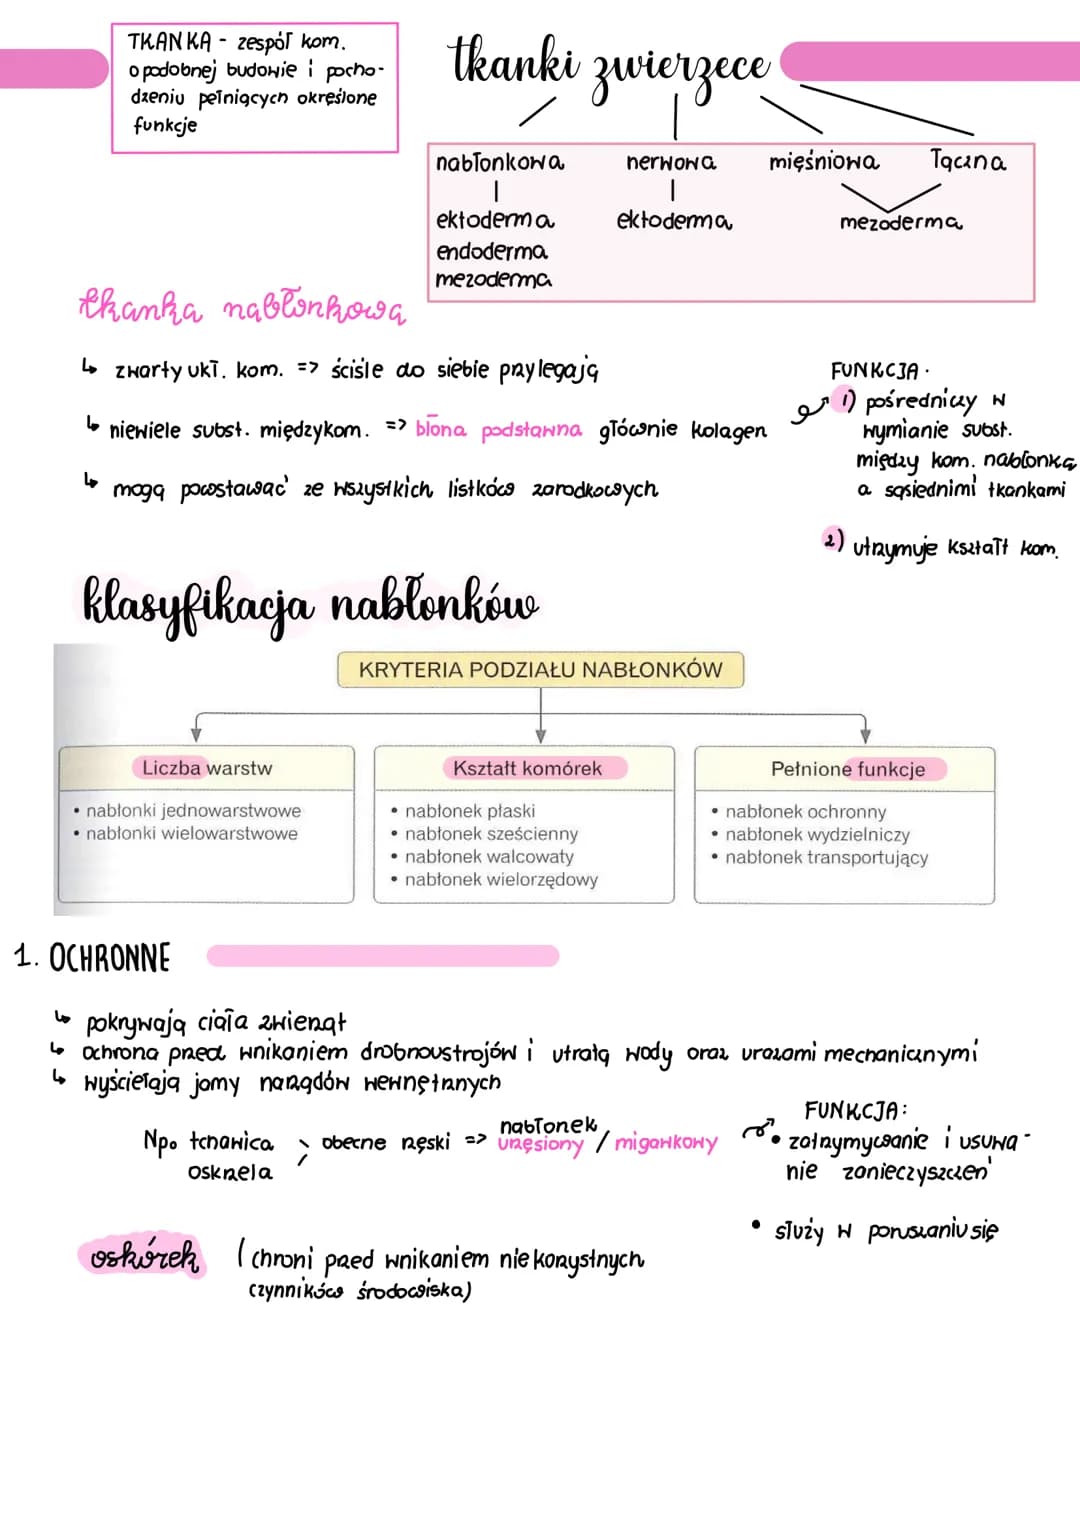 TKANKA - zespół kom.
o podobnej budowie i pocho-
dzeniu pełniących określone
funkcje
tkanki zwierzece
nabłonkowa nerwowa mięśniowa łączna
ektoderma ektoderma mezoderma
endoderma
mezoderma
tkanka nabłonkowa
↳ zwarty ukł. kom. => ściśle do siebie przylegają
↳ niewiele subst. międzykom. => błona podstawna głównie kolagen
↳ mogą powstawać ze wszystkich listków zarodkowych
FUNKCJA.
1) pośredniczy w
wymianie subst.
między kom. nabłonka
a sąsiednimi tkankami
2) utrzymuje kształt kom.
klasyfikacja nabłonków
KRYTERIA PODZIAŁU NABŁONKÓW
Liczba warstw
• nabłonki jednowarstwowe
• nabłonki wielowarstwowe
Kształt komórek
• nabłonek płaski
• nabłonek sześcienny
• nabłonek walcowaty
• nabłonek wielorzędowy
Pełnione funkcje
• nabłonek ochronny
• nabłonek wydzielniczy
• nabłonek transportujący
1. OCHRONNE
↳ pokrywają ciała zwierząt
↳ ochrona przed wnikaniem drobnoustrojów i utratą wody oraz urazami mechanicznymi
↳ wyścielają jamy narządów wewnętrznych
Np. tchawica ; obecne rzęski => nabłonek urzęsiony / migawkowy
oskrzela
FUNKCJA:
• zatrzymywanie i usuwa-
nie zanieczyszczeń
• służy w poruszaniu się
oskórek (chroni przed wnikaniem niekorzystnych
czynników środowiska)